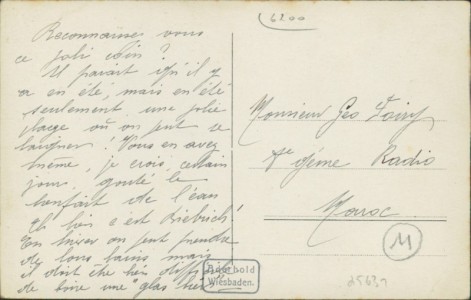 6200
Reconnaissez vous
ce joli coin ?
Il parait qu'il y
a en été, mais en été
seulement une jolie
plage où on peut se
baigner. Vous en avez
même, je crois, certain
jour, goûté le
bienfait de l'eau
Eh bien c'est Biebrich!
En hiver on peut prendre
de bons bains mais
il doit être bien difficile
de boire une "glas bier"
Monsieur Geo
Génie Radio
Maroc
M
25637
Wiesbaden.